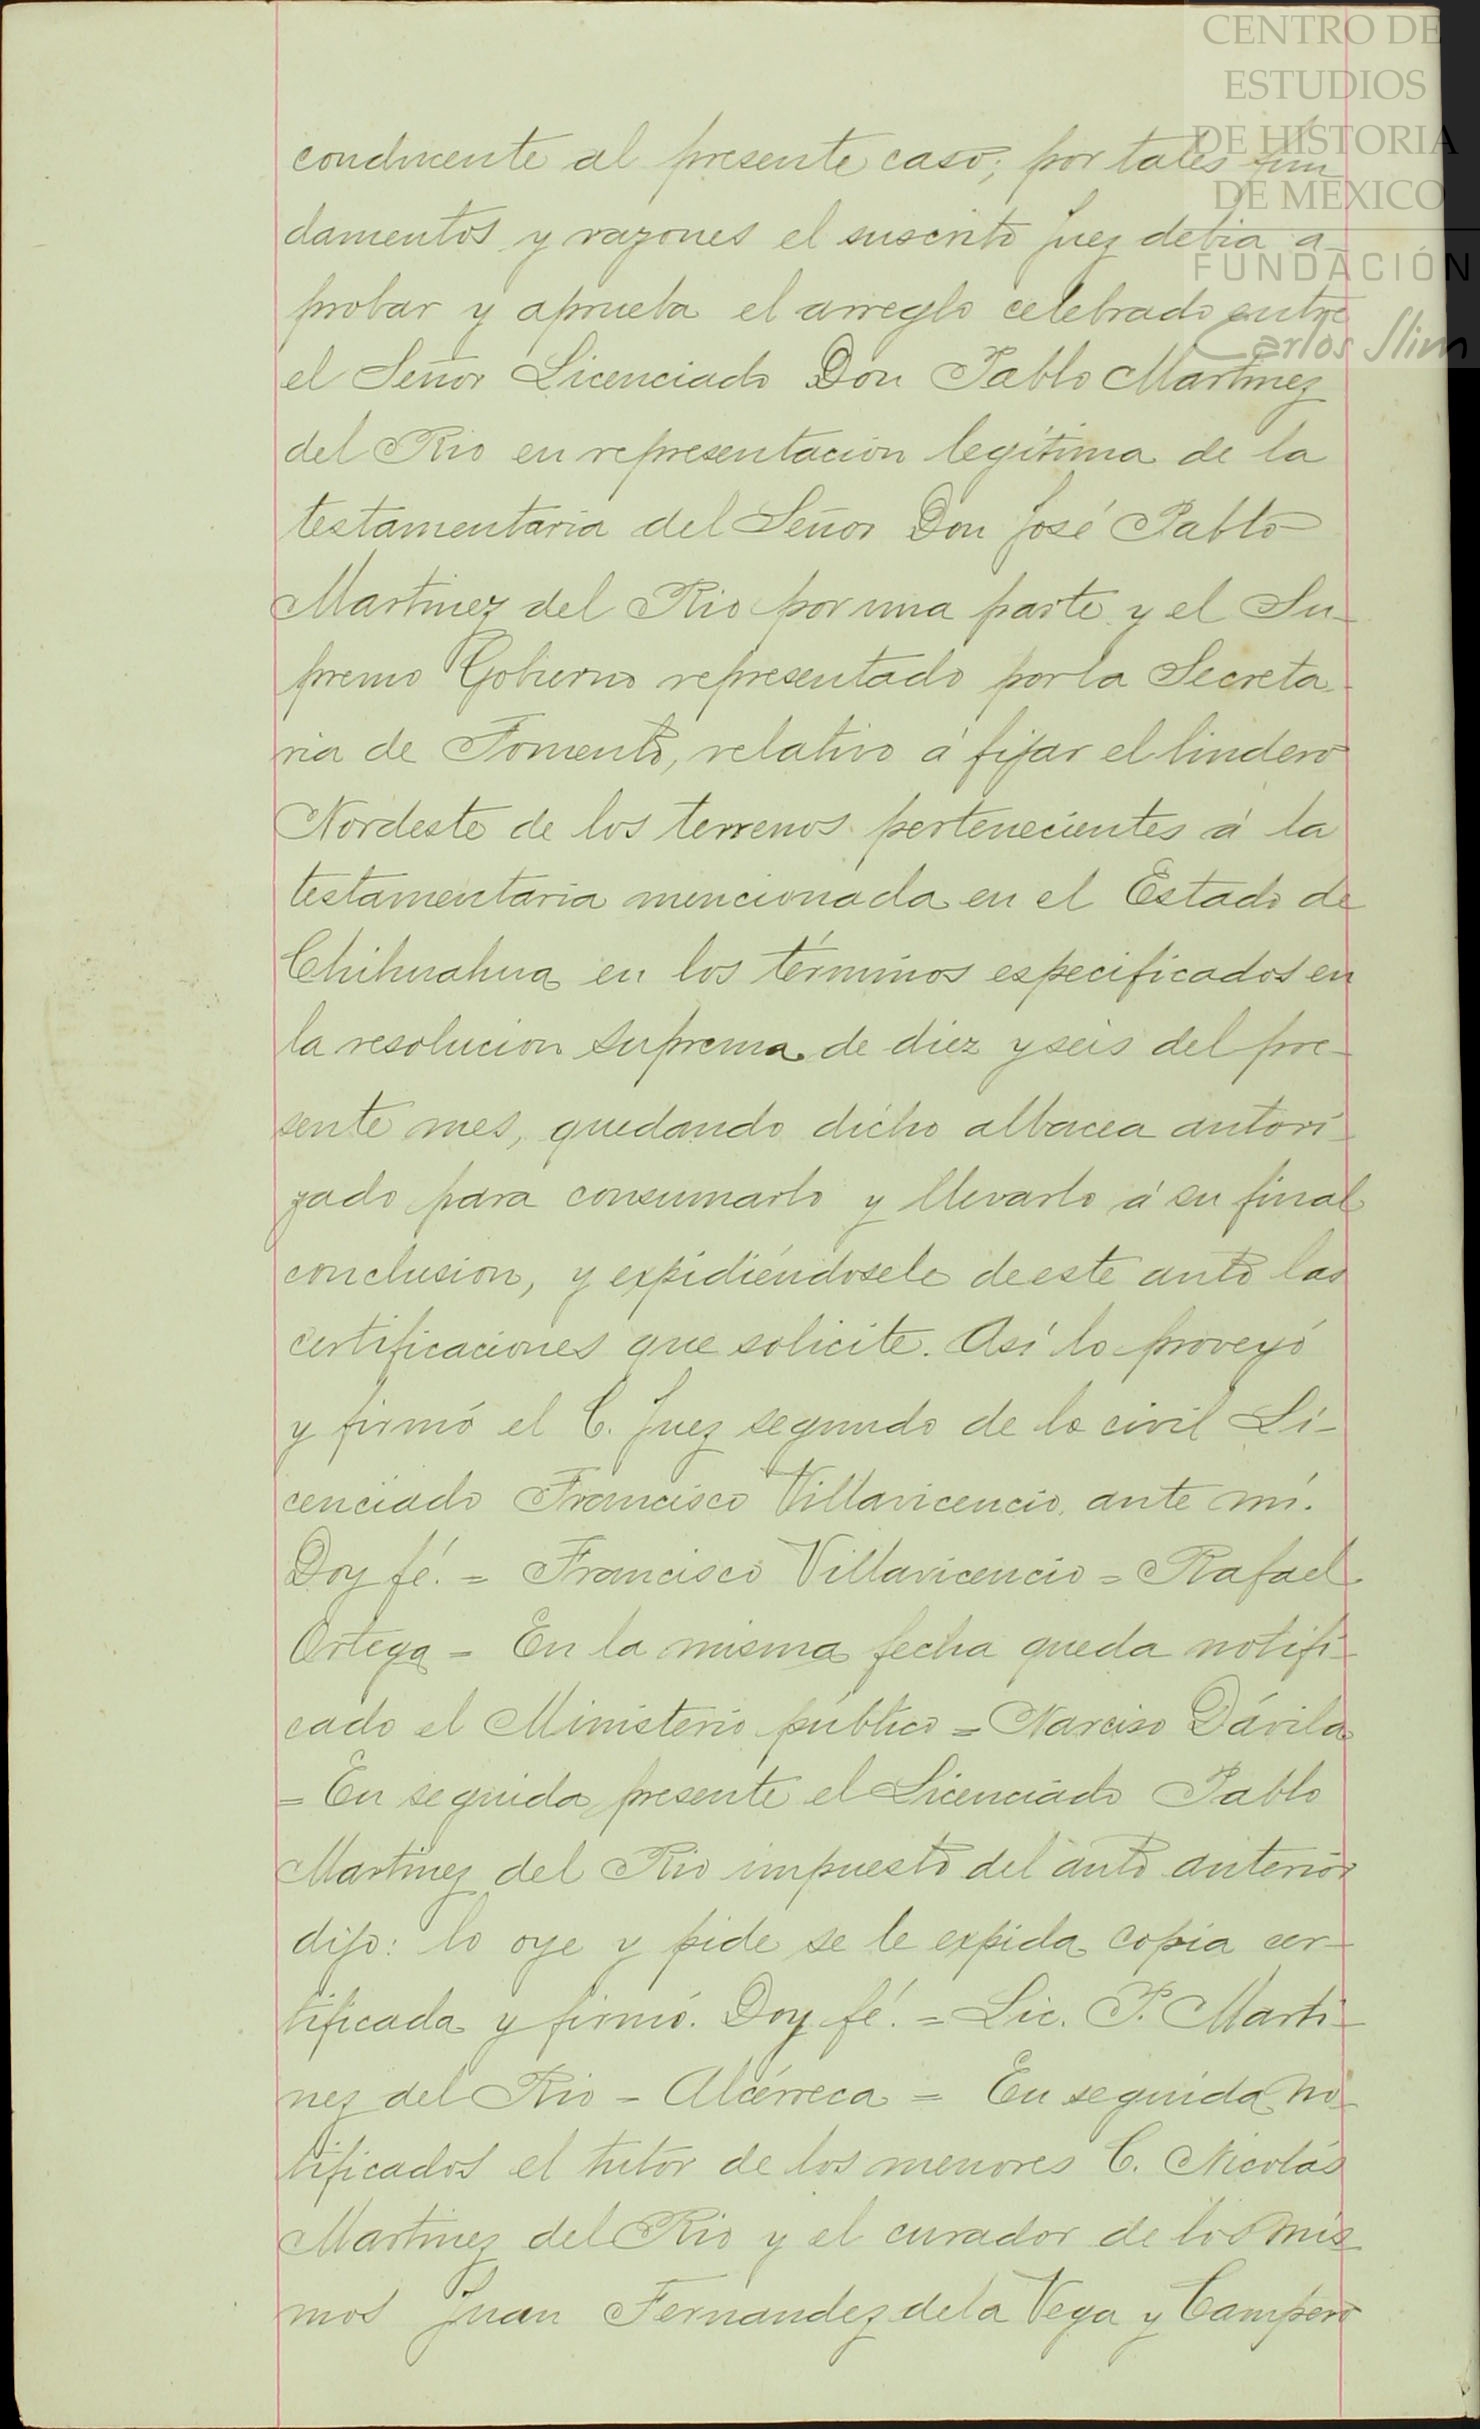 CENTRO DE
ESTUDIOS
DE HISTORIA
DE MÉXICO
FUNDACIÓN
Carlos Slim
conducente al presente caso; por tales fun
damentos y razones el suscrito Juez debia a-
probar y aprueba el arreglo celebrado entre
el Señor Licenciado Don Pablo Martinez
del Rio en representacion legítima de la
testamentaria del Señor Don José Pablo
Martinez del Rio por una parte y el Su-
premo Gobierno representado por la Secreta-
ria de Fomento, relativo á fijar el lindero
Nordeste de los terrenos pertenecientes á la
testamentaria mencionada en el Estado de
Chihuahua en los términos especificados en
la resolucion suprema de diez y seis del pre-
sente mes, quedando dicho albacea autori-
zado para consumarlo y llevarlo á su final
conclusion, y expidiéndosele de este auto las
certificaciones que solicite. Así lo proveyó
y firmó el C. Juez segundo de lo civil Li-
cenciado Francisco Villavicencio, ante mí.
Doy fé. = Francisco Villavicencio = Rafael
Ortega = En la misma fecha queda notifi-
cado el Ministerio público = Narciso Dávila
= En seguida presente el Licenciado Pablo
Martinez del Rio impuesto del auto anterior
dijo: lo oye y pide se le expida copia cer-
tificada y firmó. Doy fé. = Lic. P. Marti-
nez del Rio = Alcérreca = En seguida no-
tificados el tutor de los menores C. Nicolás
Martinez del Rio y el curador de los mis-
mos Juan Fernandez de la Vega y Campero